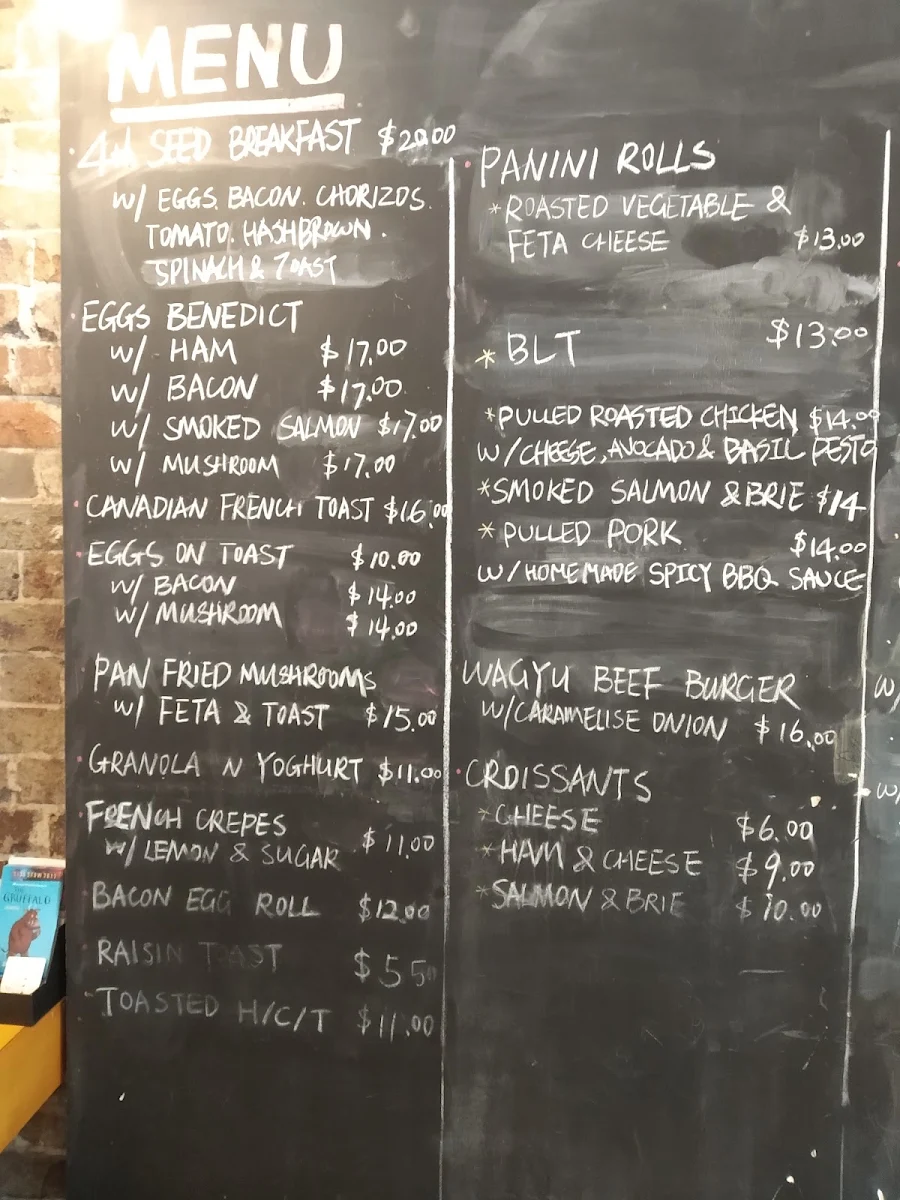 MENU
4th SEED BREAKFAST $20.00
W/ EGGS. BACON. CHORIZOS.
TOMATO. HASHBROWN.
SPINACH & TOAST
EGGS BENEDICT
W/ HAM $17.00
W/ BACON $17.00
W/ SMOKED SALMON $17.00
W/ MUSHROOM $17.00
CANADIAN FRENCH TOAST $16.00
EGGS ON TOAST $10.00
W/ BACON $14.00
W/ MUSHROOM $14.00
PAN FRIED MUSHROOMS
W/ FETA & TOAST $15.00
GRANOLA N YOGHURT $11.00
FRENCH CREPES
W/ LEMON & SUGAR $11.00
BACON EGG ROLL $12.00
RAISIN TOAST $5.50
TOASTED H/C/T $11.00
PANINI ROLLS
*ROASTED VEGETABLE &
FETA CHEESE $13.00
*BLT $13.00
*PULLED ROASTED CHICKEN $14.00
W/CHEESE, AVOCADO & BASIL PESTO
*SMOKED SALMON & BRIE $14
*PULLED PORK $14.00
W/HOMEMADE SPICY BBQ SAUCE
WAGYU BEEF BURGER
W/CARAMELISE ONION $16.00
CROISSANTS
*CHEESE $6.00
*HAM & CHEESE $9.00
*SALMON & BRIE $10.00
W/
W/
GRUFFALO